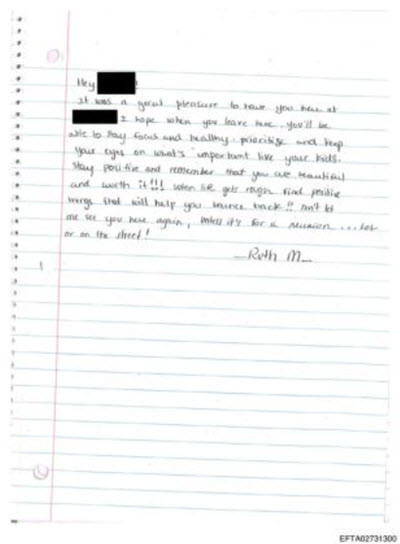 Hey
It was a great pleasure to have you here at
I hope when you leave here, you'll be
able to stay focus and healthy. prioritize and keep
your eyes on what's important like your kids.
Stay positive and remember that you are beautiful
and worth it!!! When life gets rough find positive
things that will help you bounce back!! Don't let
me see you here again, unless it's for a reunion ... lol
or on the street!
—Ruth M—
EFTA02731300